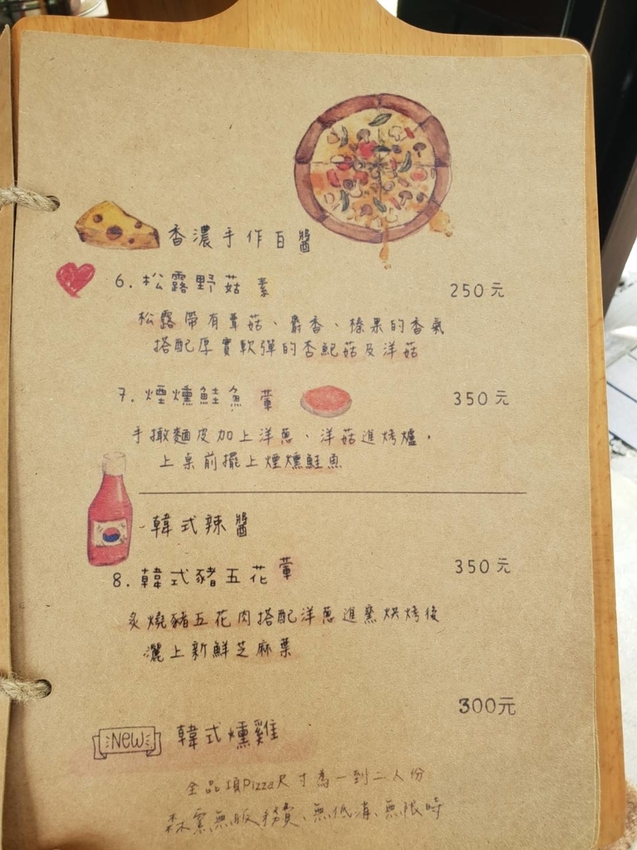 香濃手作白醬
6. 松露野菇 素 250元
松露帶有蕈菇、麝香、榛果的香氣
搭配厚實軟彈的杏鮑菇及洋菇
7. 煙燻鮭魚 葷 350元
手撖麵皮加上洋蔥、洋菇進烤爐，
上桌前擺上煙燻鮭魚
韓式辣醬
8. 韓式豬五花 葷 350元
炙燒豬五花肉搭配洋蔥進窯烘烤後
灑上新鮮芝麻葉
NEW 韓式燻雞 300元
全品項Pizza尺寸為一到二人份
森窯無服務費、無低消、無限時